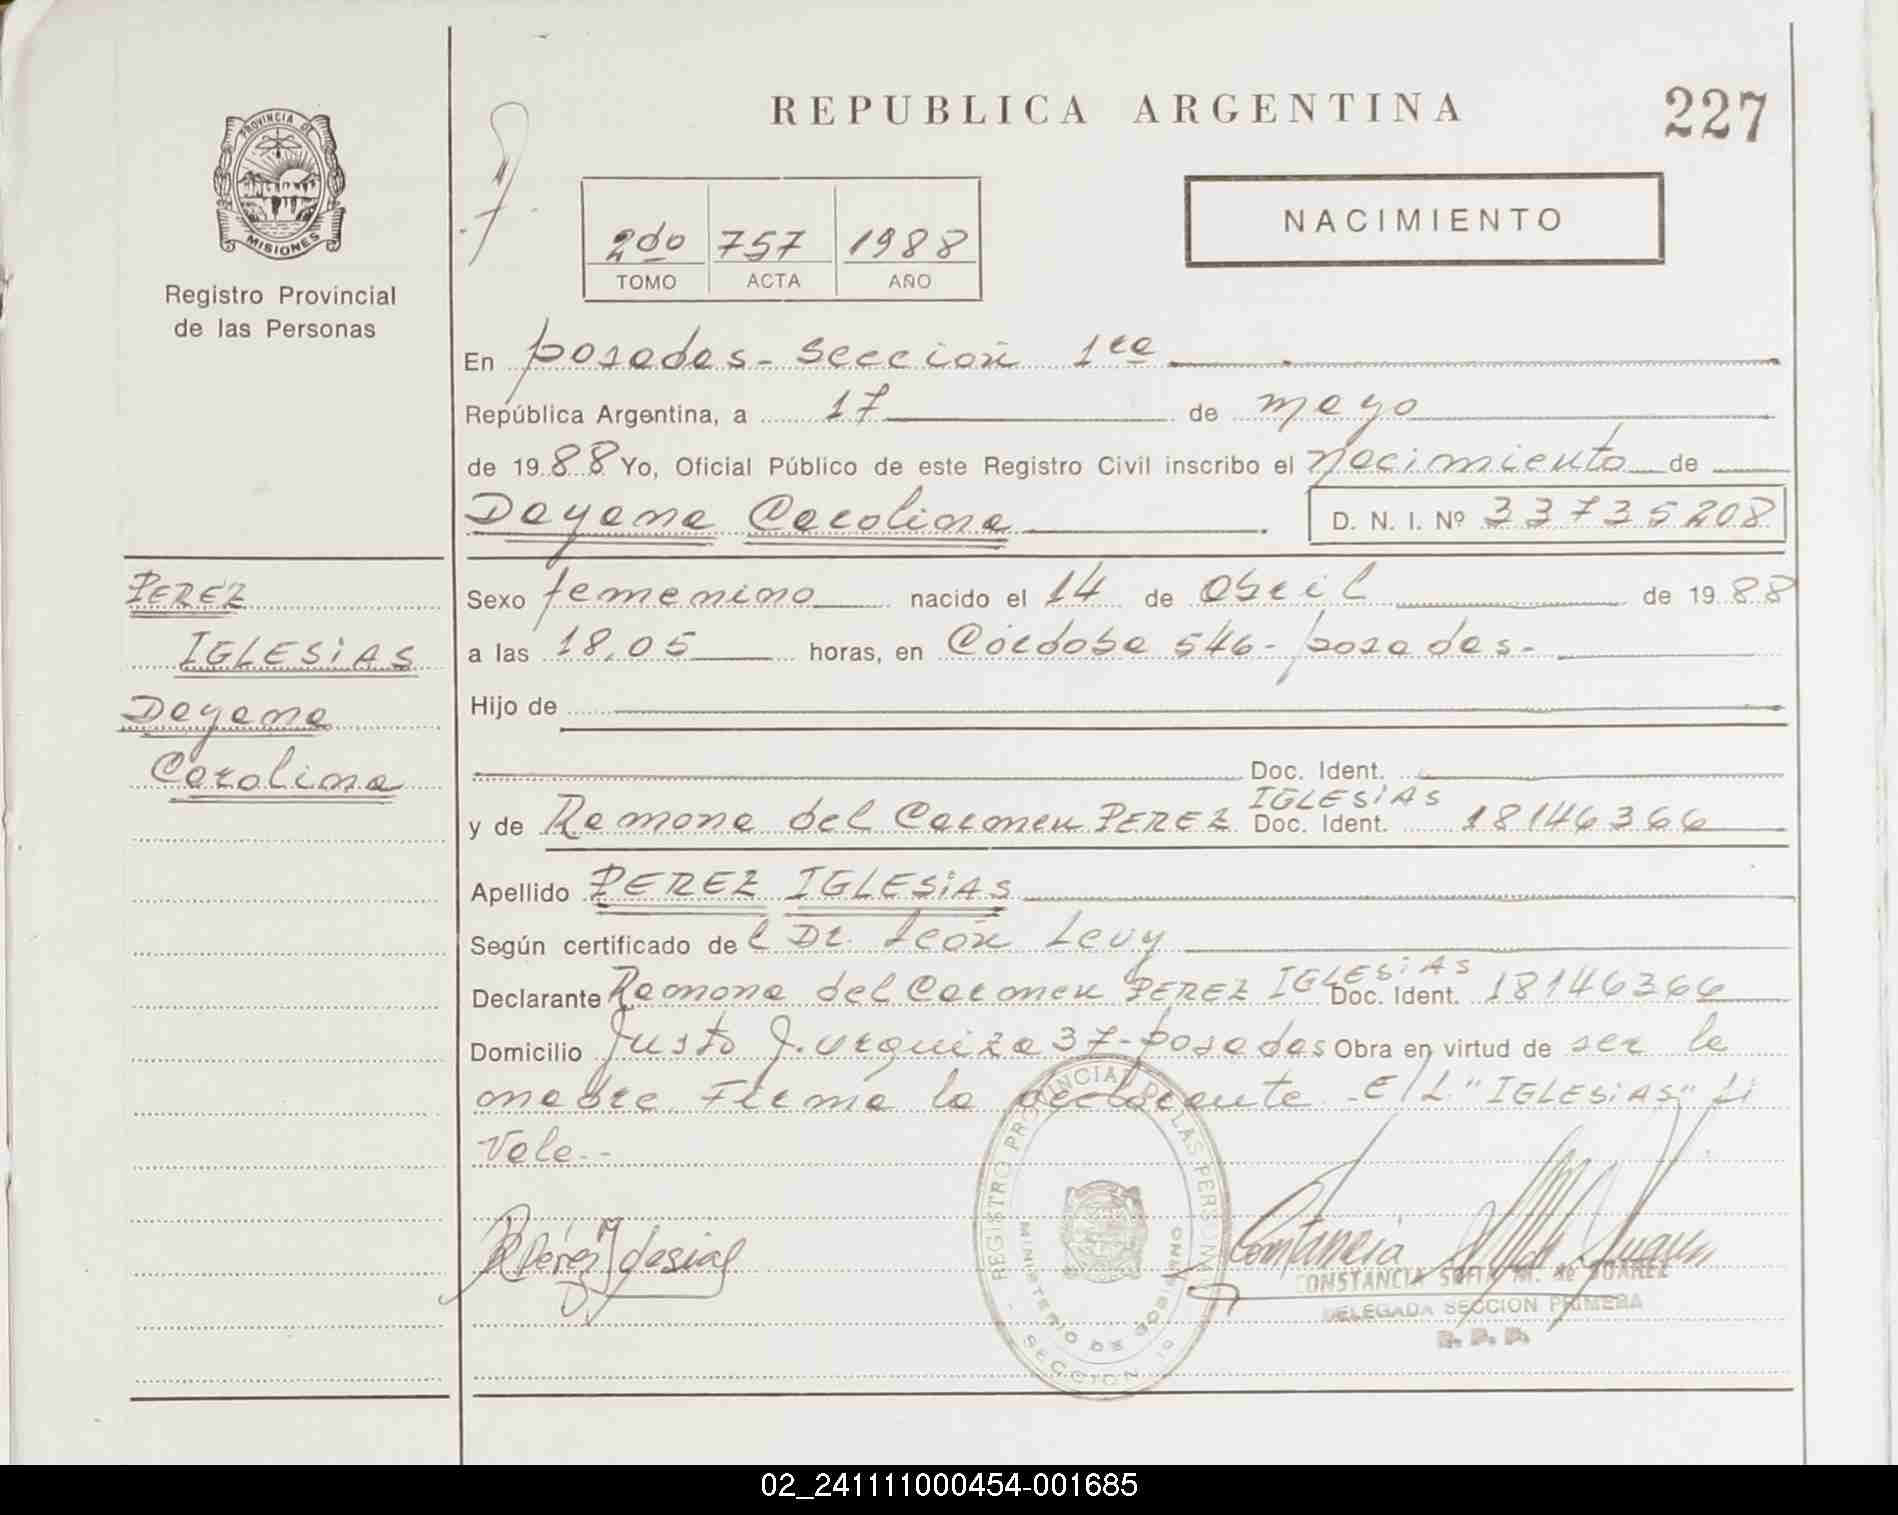 REPUBLICA ARGENTINA
227
PROVINCIA DE
MISIONES
Registro Provincial
de las Personas
NACIMIENTO
2do 757 1988
TOMO ACTA AÑO
En posadas - Sección 1ra
República Argentina, a 17 de mayo
de 1988 Yo, Oficial Público de este Registro Civil inscribo el nacimiento de
Dayana Carolina D. N. I. Nº 33735208
PEREZ
IGLESiAS
Dayana
Carolina
Sexo femenino nacido el 14 de abril de 1988
a las 18,05 horas, en Córdoba 546 - posadas.-
Hijo de
Doc. Ident.
IGLESiAS
y de Ramona del Carmen PEREZ Doc. Ident. 18146366
Apellido PEREZ IGLESiAS
Según certificado de l Dr. León Levy
Declarante Ramona del Carmen PEREZ IGLESiAS Doc. Ident. 18146366
Domicilio Justo J. urquiza 37 - posadas Obra en virtud de ser la
madre. Firma la declarante - E/L "IGLESiAS" Si
Vale.--
REGISTRO PROVINCIAL DE LAS PERSONAS
MINISTERIO DE GOBIERNO
SECCION 1º
Constancia
CONSTANCIA SOFIA M. de SUAREZ
DELEGADA SECCION PRIMERA
R. P. P.
02_241111000454-001685